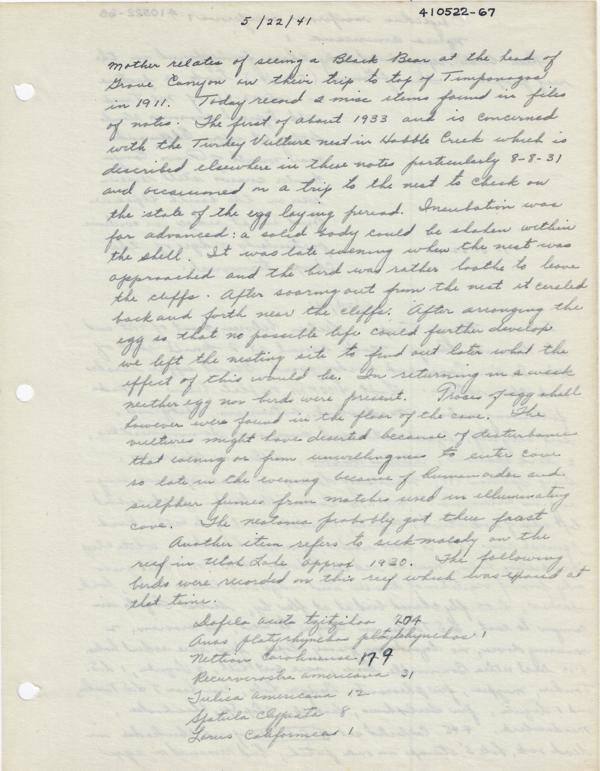 410522-67
5/22/41
Mother relates of seeing a Black Bear at the head of
Grove Canyon on their trip to top of Timponogos
in 1911. Today record 2 misc items found in files
of notes. The first of about 1933 and is concerned
with the Turkey Vulture nest in Hobble Creek which is
described elsewhere in these notes particularly 8-8-31
and occasioned on a trip to the nest to check on
the state of the egg laying period. Incubation was
far advanced: a solid body could be shaken within
the shell. It was late evening when the nest was
approached and the bird was rather loathe to leave
the cliffs. After soaring out from the nest it circled
back and forth near the cliffs. After arranging the
egg so that no possible life could further develop
we left the nesting site to find out later what the
effect of this would be. In returning in a week
neither egg nor birds were present. Traces of egg shell
however were found in the floor of the cave. The
vultures might have deserted because of disturbance
that evening or from unwillingness to enter cave
so late in the evening because of human odor and
sulpher fumes from matches used in illuminating
cave. The probably got their feast
Another item refers to sick malady on the
reef in Utah Lake approx 1930. The following
birds were recorded on this reef which was exposed at
that time.
Dafila acuta tzitzihoa 204
Anas platyrhynchos platyrhynchos 1
Nettion carolinense 179
Recurverostra americana 31
Fulica americana 12
Spatula clypeata 8
Larus californicus 1